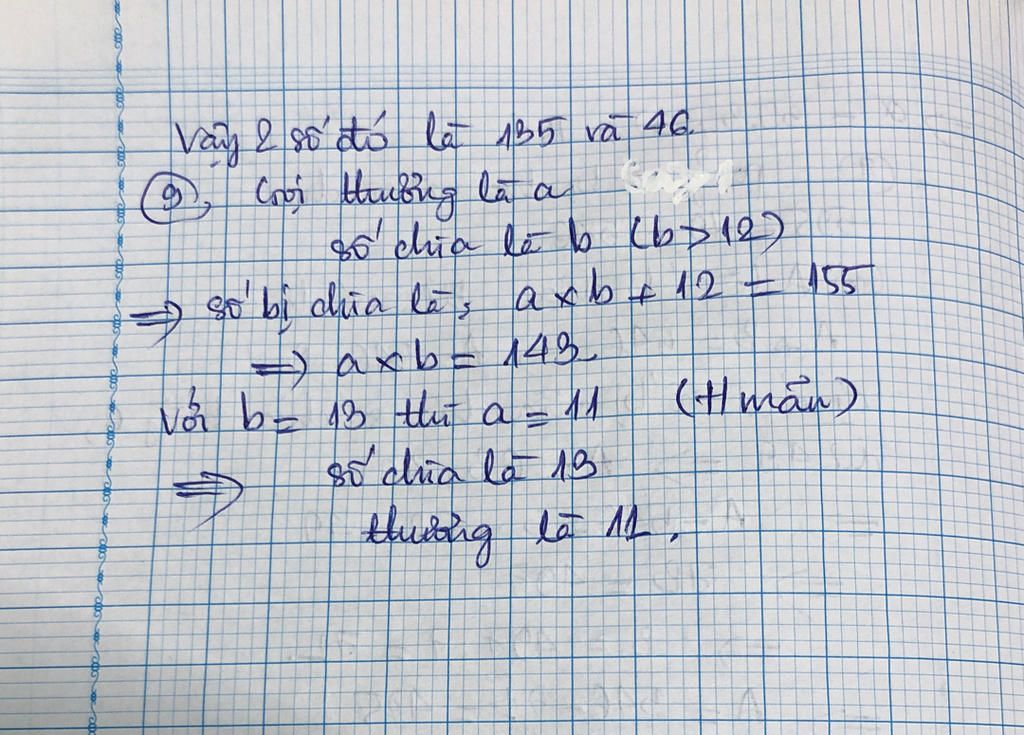 Vậy 2 số đó là 135 và 46.
9, Gọi thương là a
số chia là b (b > 12)
=> số bị chia là, a x b + 12 = 155
=> a x b = 143
Với b = 13 thì a = 11 (t mãn)
=> số chia là 13
thương là 11.